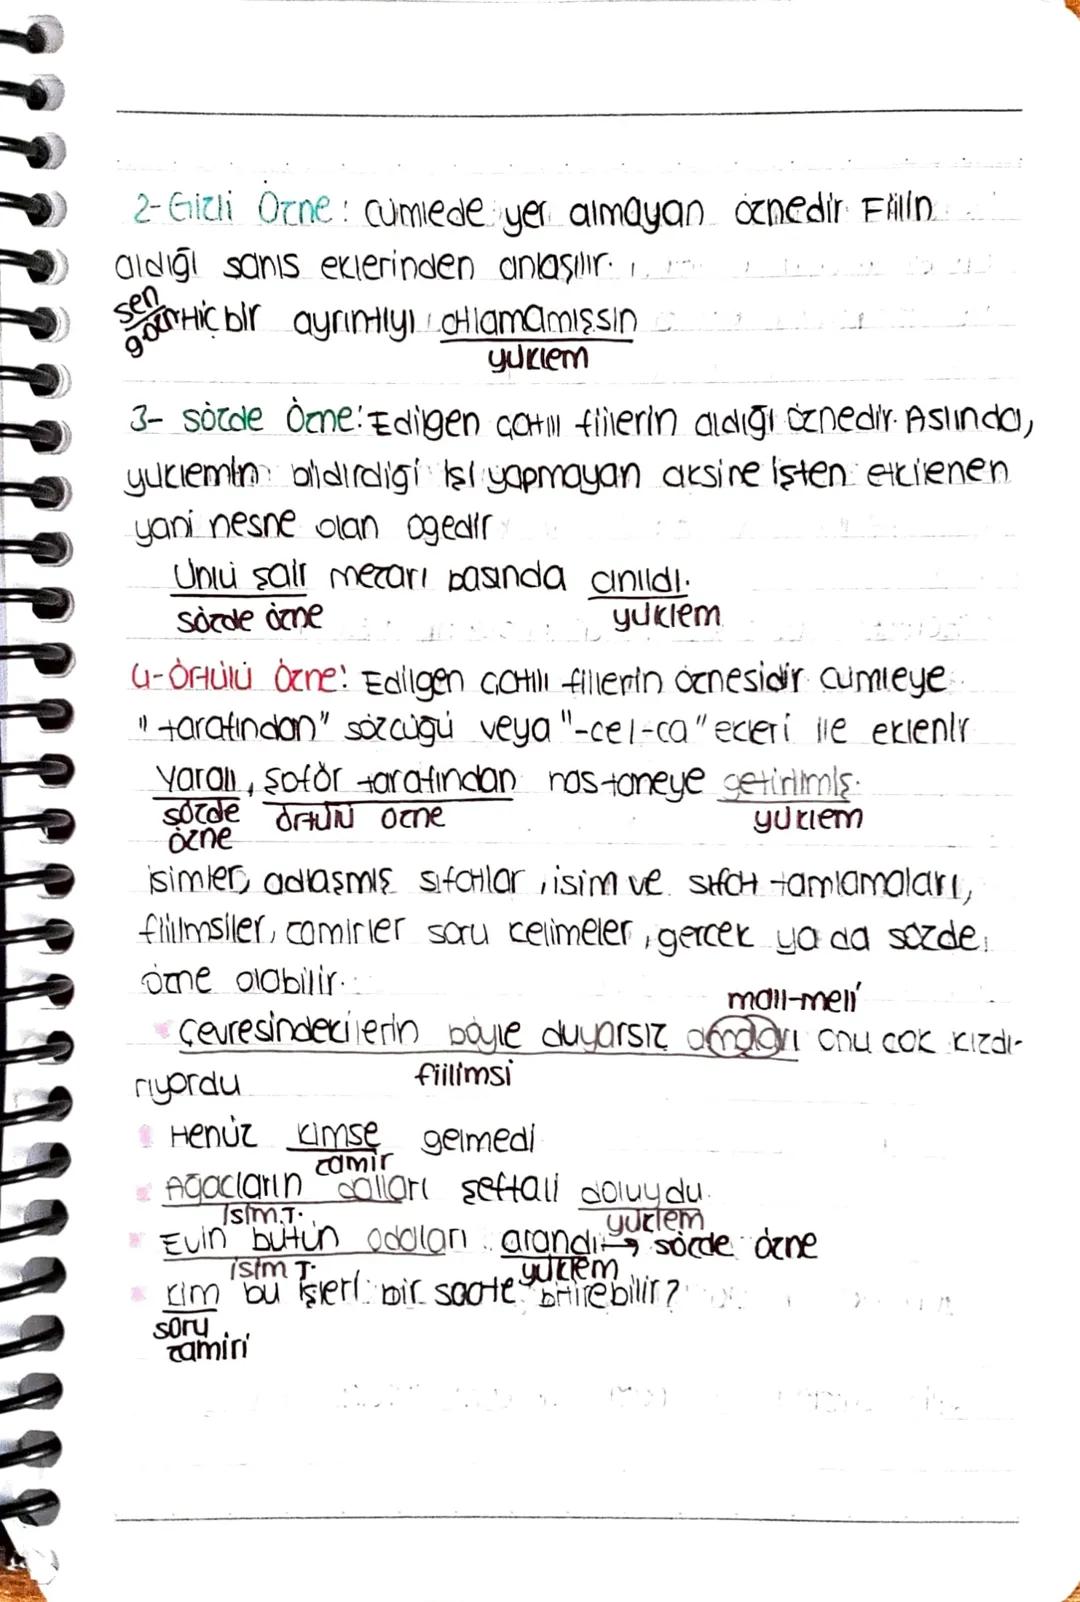 2-Gizli Özne: cümlede yer almayan öznedir Fiilin
aldığı şahıs eklerinden anlaşılır.
sen
gözne Hiç bir ayrıntıyı atlamamışsın
yüklem
3- sözde Özne: Edilgen çatılı fiilerin aldığı öznedir. Aslında,
yüklemin bildirdiği işi yapmayan aksine işten etkilenen
yani nesne olan ögedir
Ünlü şair mezarı başında anıldı.
sözde özne yüklem
4-Örtülü Özne: Edilgen çatılı fiillerin öznesidir cümleye
"tarafından" sözcüğü veya "-ce/-ca" ekleri ile eklenir
Yaralı, şoför tarafından hastaneye getirilmiş.
sözde örtülü özne yüklem
özne
isimler, adlaşmış sıfatlar, isim ve sıfat tamlamaları,
fiilimsiler, zamirler soru kelimeler, gerçek ya da sözde
özne olabilir.
malı-meli
Çevresindekilerin böyle duyarsız olmaları onu çok kızdı-
rıyordu fiilimsi
Henüz kimse gelmedi
zamir
Ağaçların dalları şeftali doluydu.
isim.T. yüklem
Evin bütün odaları arandı → sözde özne
isim T. yüklem
Kim bu işleri bir saate bitirebilir?
soru
zamiri